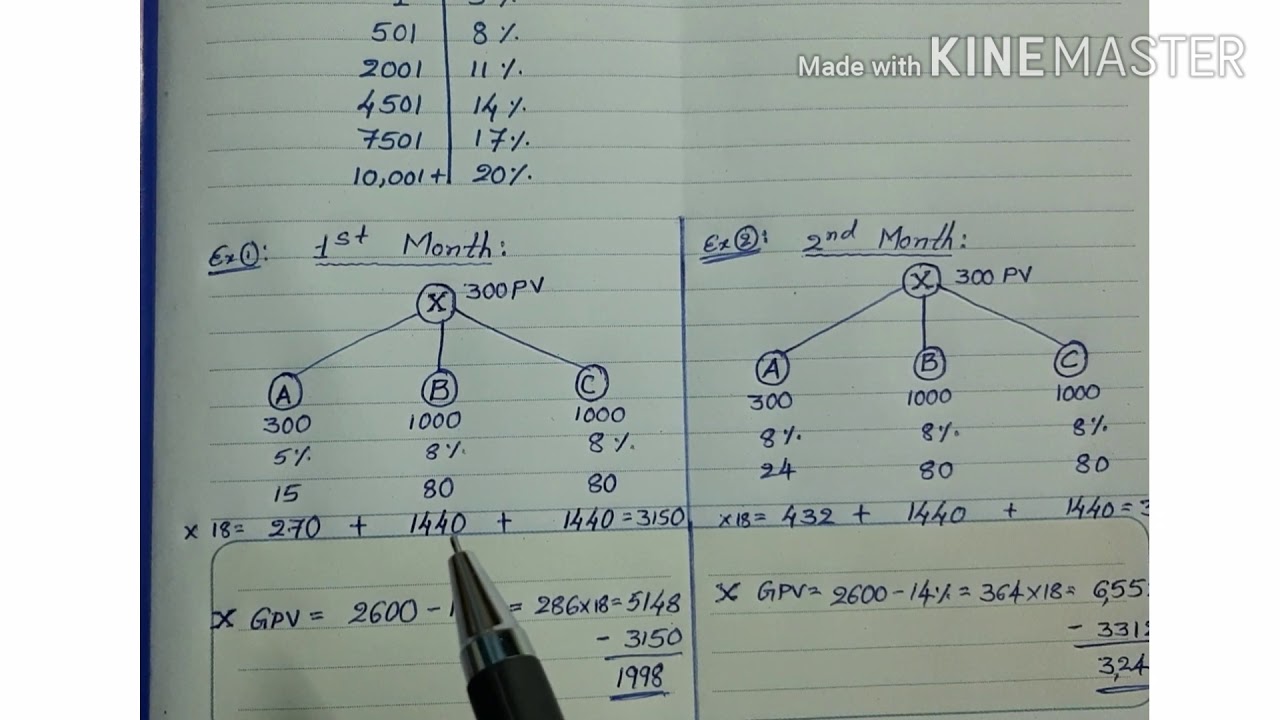 Made with KINEMASTER
501 8%
2001 11%
4501 14%
7501 17%
10,001+ 20%
Ex①: 1st Month:
X 300PV
A B C
300 1000 1000
5% 8% 8%
15 80 80
x 18= 270 + 1440 + 1440=3150
X GPV= 2600- = 286x18=5148
- 3150
1998
Ex②: 2nd Month:
X 300 PV
A B C
300 1000 1000
8% 8% 8%
24 80 80
x18= 432 + 1440 + 1440=
X GPV= 2600-14%=364x18= 6,55
- 331
3,24